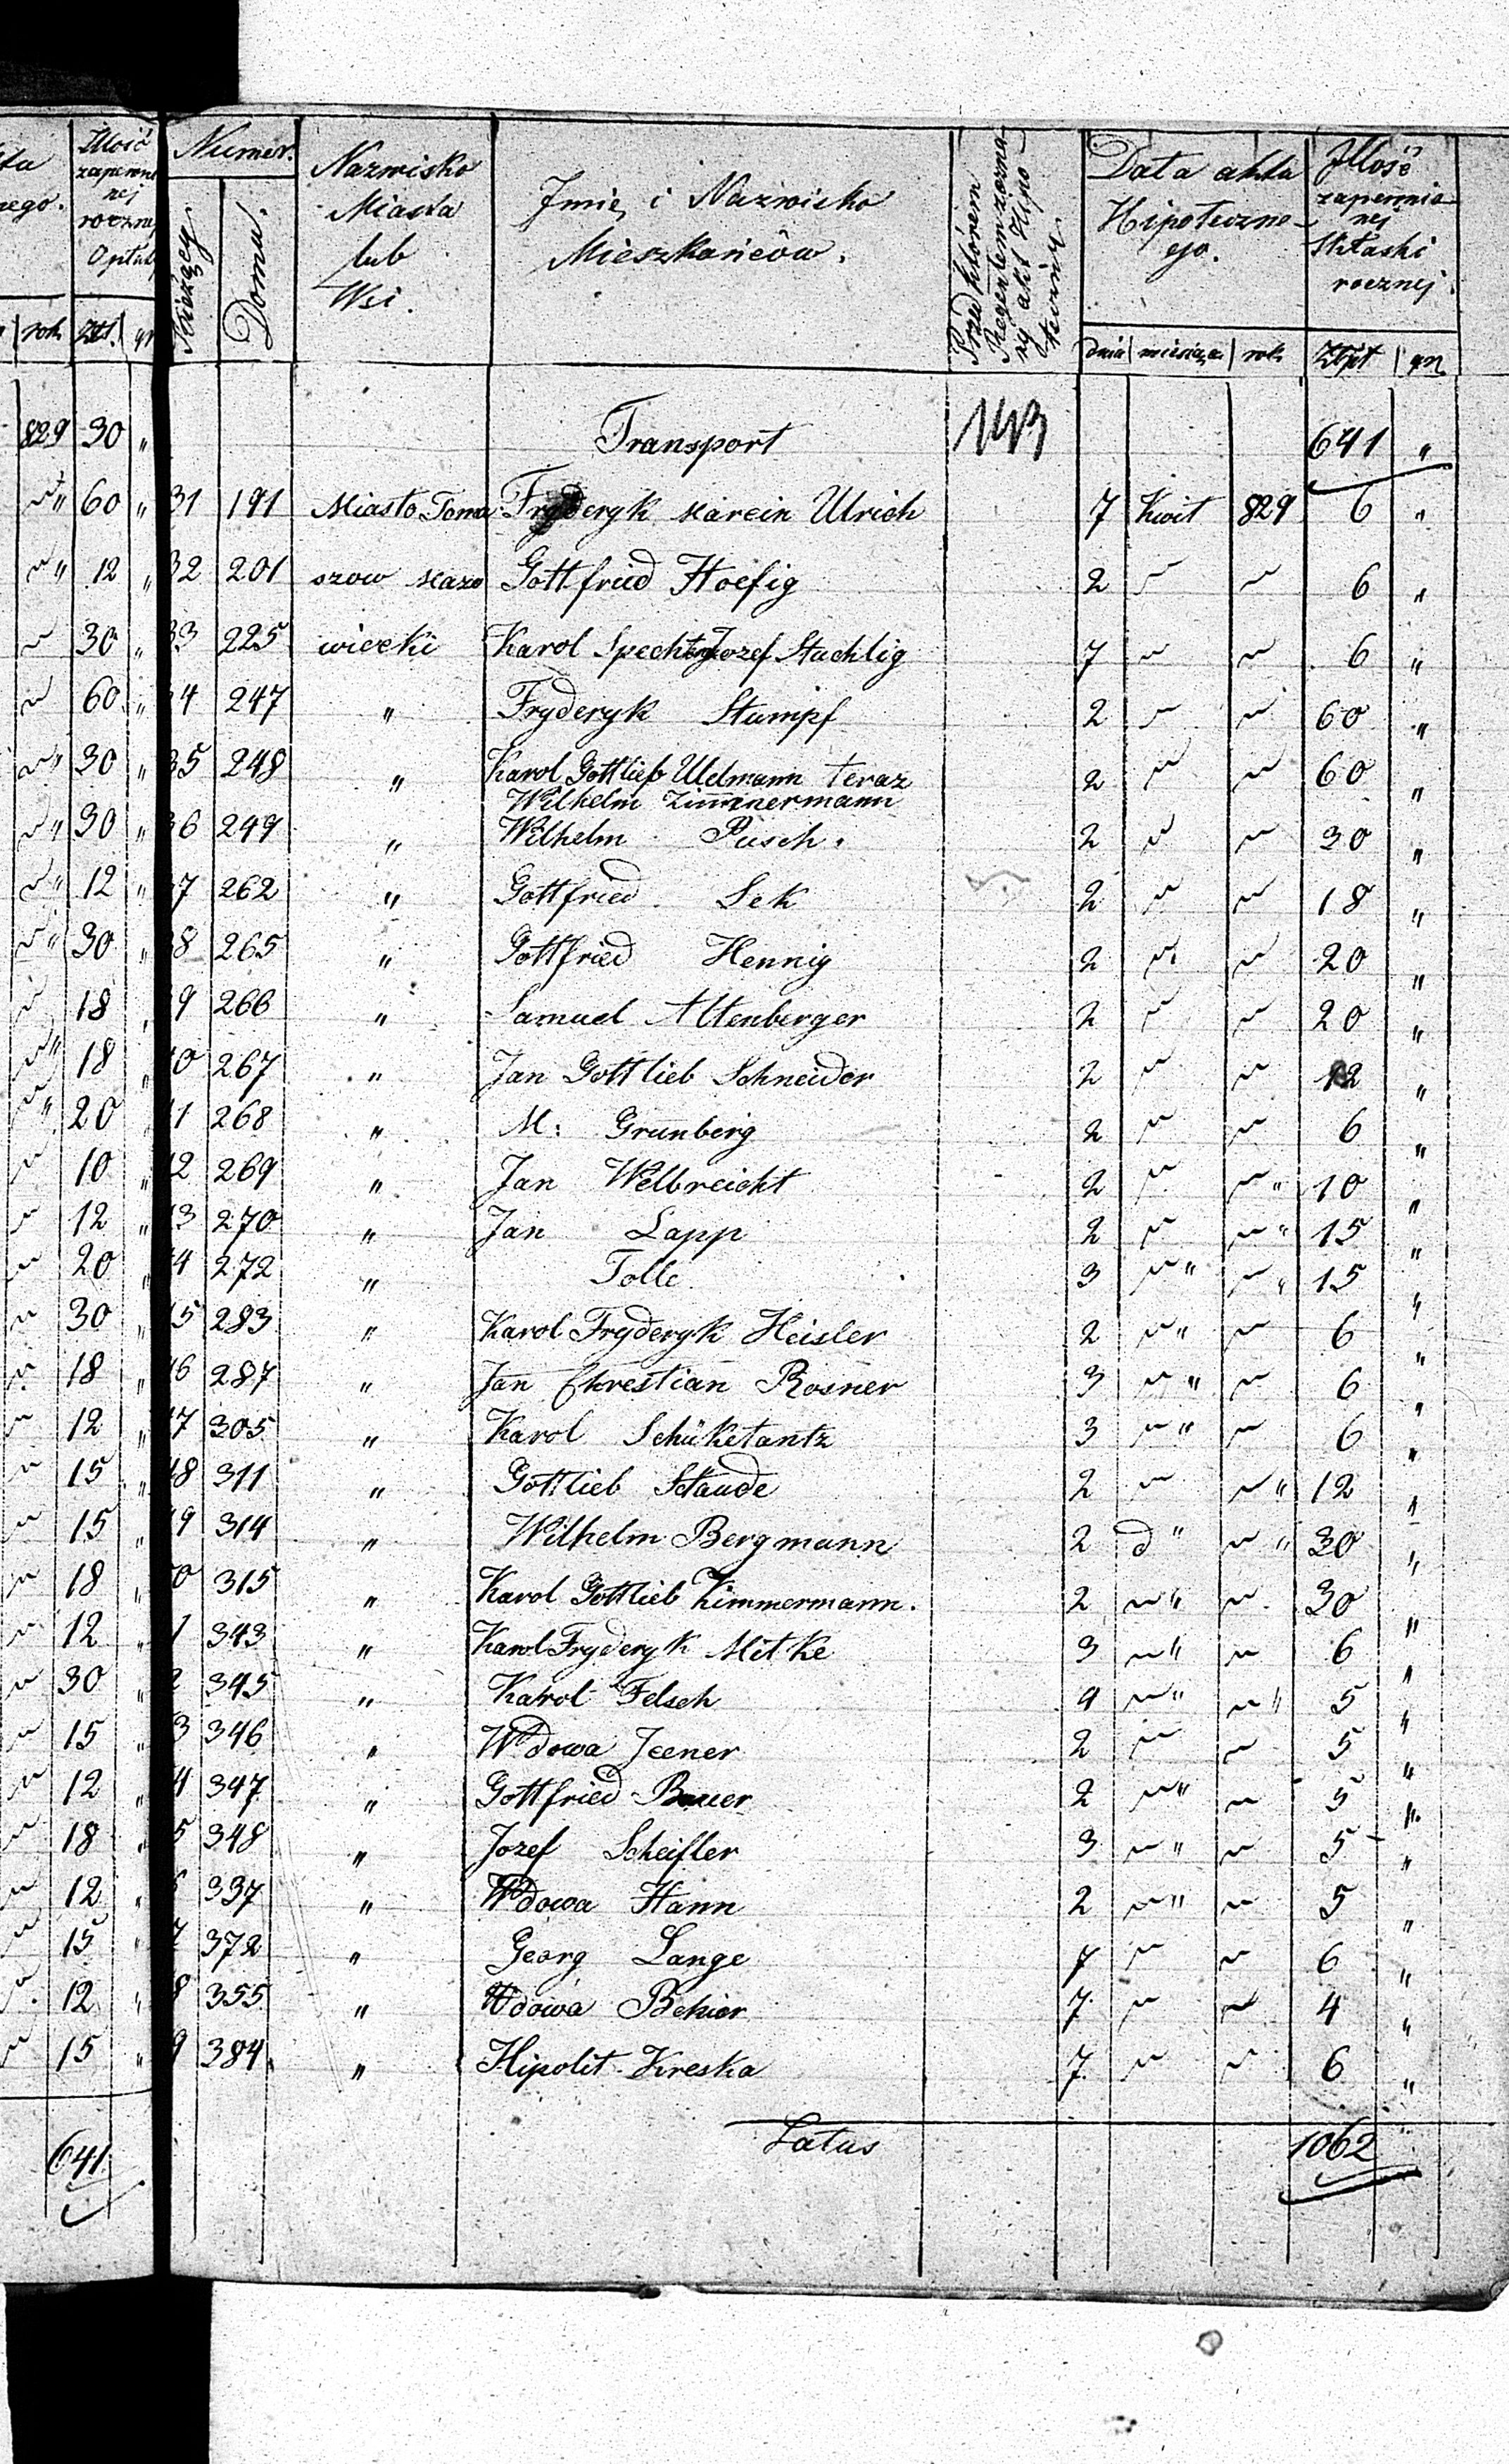 Ilość
zapewnio
nej
rocznej
rok | Złt. | gr
829 30 "
" 60 "
" 12 "
" 30 "
" 60 "
" 30 "
" 30 "
" 12 "
" 30 "
" 18 "
" 18 "
" 20 "
" 10 "
" 12 "
" 20 "
" 30 "
" 18 "
" 12 "
" 15 "
" 15 "
" 18 "
" 12 "
" 30 "
" 15 "
" 12 "
" 18 "
" 12 "
" 15 "
" 12 "
" 15 "
641
Numer.
Bieżący.
Domu.
Nazwisko
Miasta
lub
Wsi.
Imie, i Nazwisko
Mieszkańców.
Przed którem
Regentem zezna
ny akt Hipo
teczny.
Data aktu
Hipoteczne
go.
dnia | miesiąca | rok
Ilość
zapewnio
nej
Składki
rocznej.
Złpt | gr
Transport 143 641 "
31 191 Miasto Toma Fryderyk Marcin Ulrich 7 Kwit 829 6 "
32 201 szow Mazo Gottfried Hoefig 2 " " 6 "
33 225 wiecki Karol Specht Jozef Stachlig 7 " " 6 "
34 247 " Fryderyk Stumpf 2 " " 60 "
35 248 " Karol Gottlieb Uldmann teraz 2 " " 60 "
Wilhelm Zimmermann
36 249 " Wilhelm Pusch. 2 " " 30 "
37 262 " Gottfried Sek 2 " " 18 "
38 265 " Gottfried Hennig 2 " " 20 "
9 266 " Samuel Altenberger 2 " " 20 "
40 267 " Jan Gottlieb Schneider 2 " " 12 "
41 268 " M: Grünberg 2 " " 6 "
42 269 " Jan Welbreicht 2 " " 10 "
43 270 " Jan Lapp 2 " " 15 "
44 272 " Tolle 3 " " 15 "
45 283 " Karol Fryderyk Heisler 2 " " 6 "
46 287 " Jan Chrestian Rosner 3 " " 6 "
47 305 " Karol Schüketantz 3 " " 6 "
48 311 " Gottlieb Staude 2 " " 12 "
49 314 " Wilhelm Bergmann 2 d" " 30 "
0 315 " Karol Gottlieb Zimmermann. 2 " " 30 "
1 343 " Karol Fryderyk Mitke 3 " " 6 "
2 345 " Karol Felsch 9 " " 5 "
3 346 " Wdowa Jeener 2 " " 5 "
4 347 " Gottfried Bauer 2 " " 5 "
5 348 " Jozef Scheifler 3 " " 5 "
6 337 " Wdowa Hann 2 " " 5 "
7 372 " Georg Lange 7 " " 6 "
8 355 " Wdowa Bekier 7 " " 4 "
9 384. " Hipolit Kreska 7 " " 6 "
Latus 1062